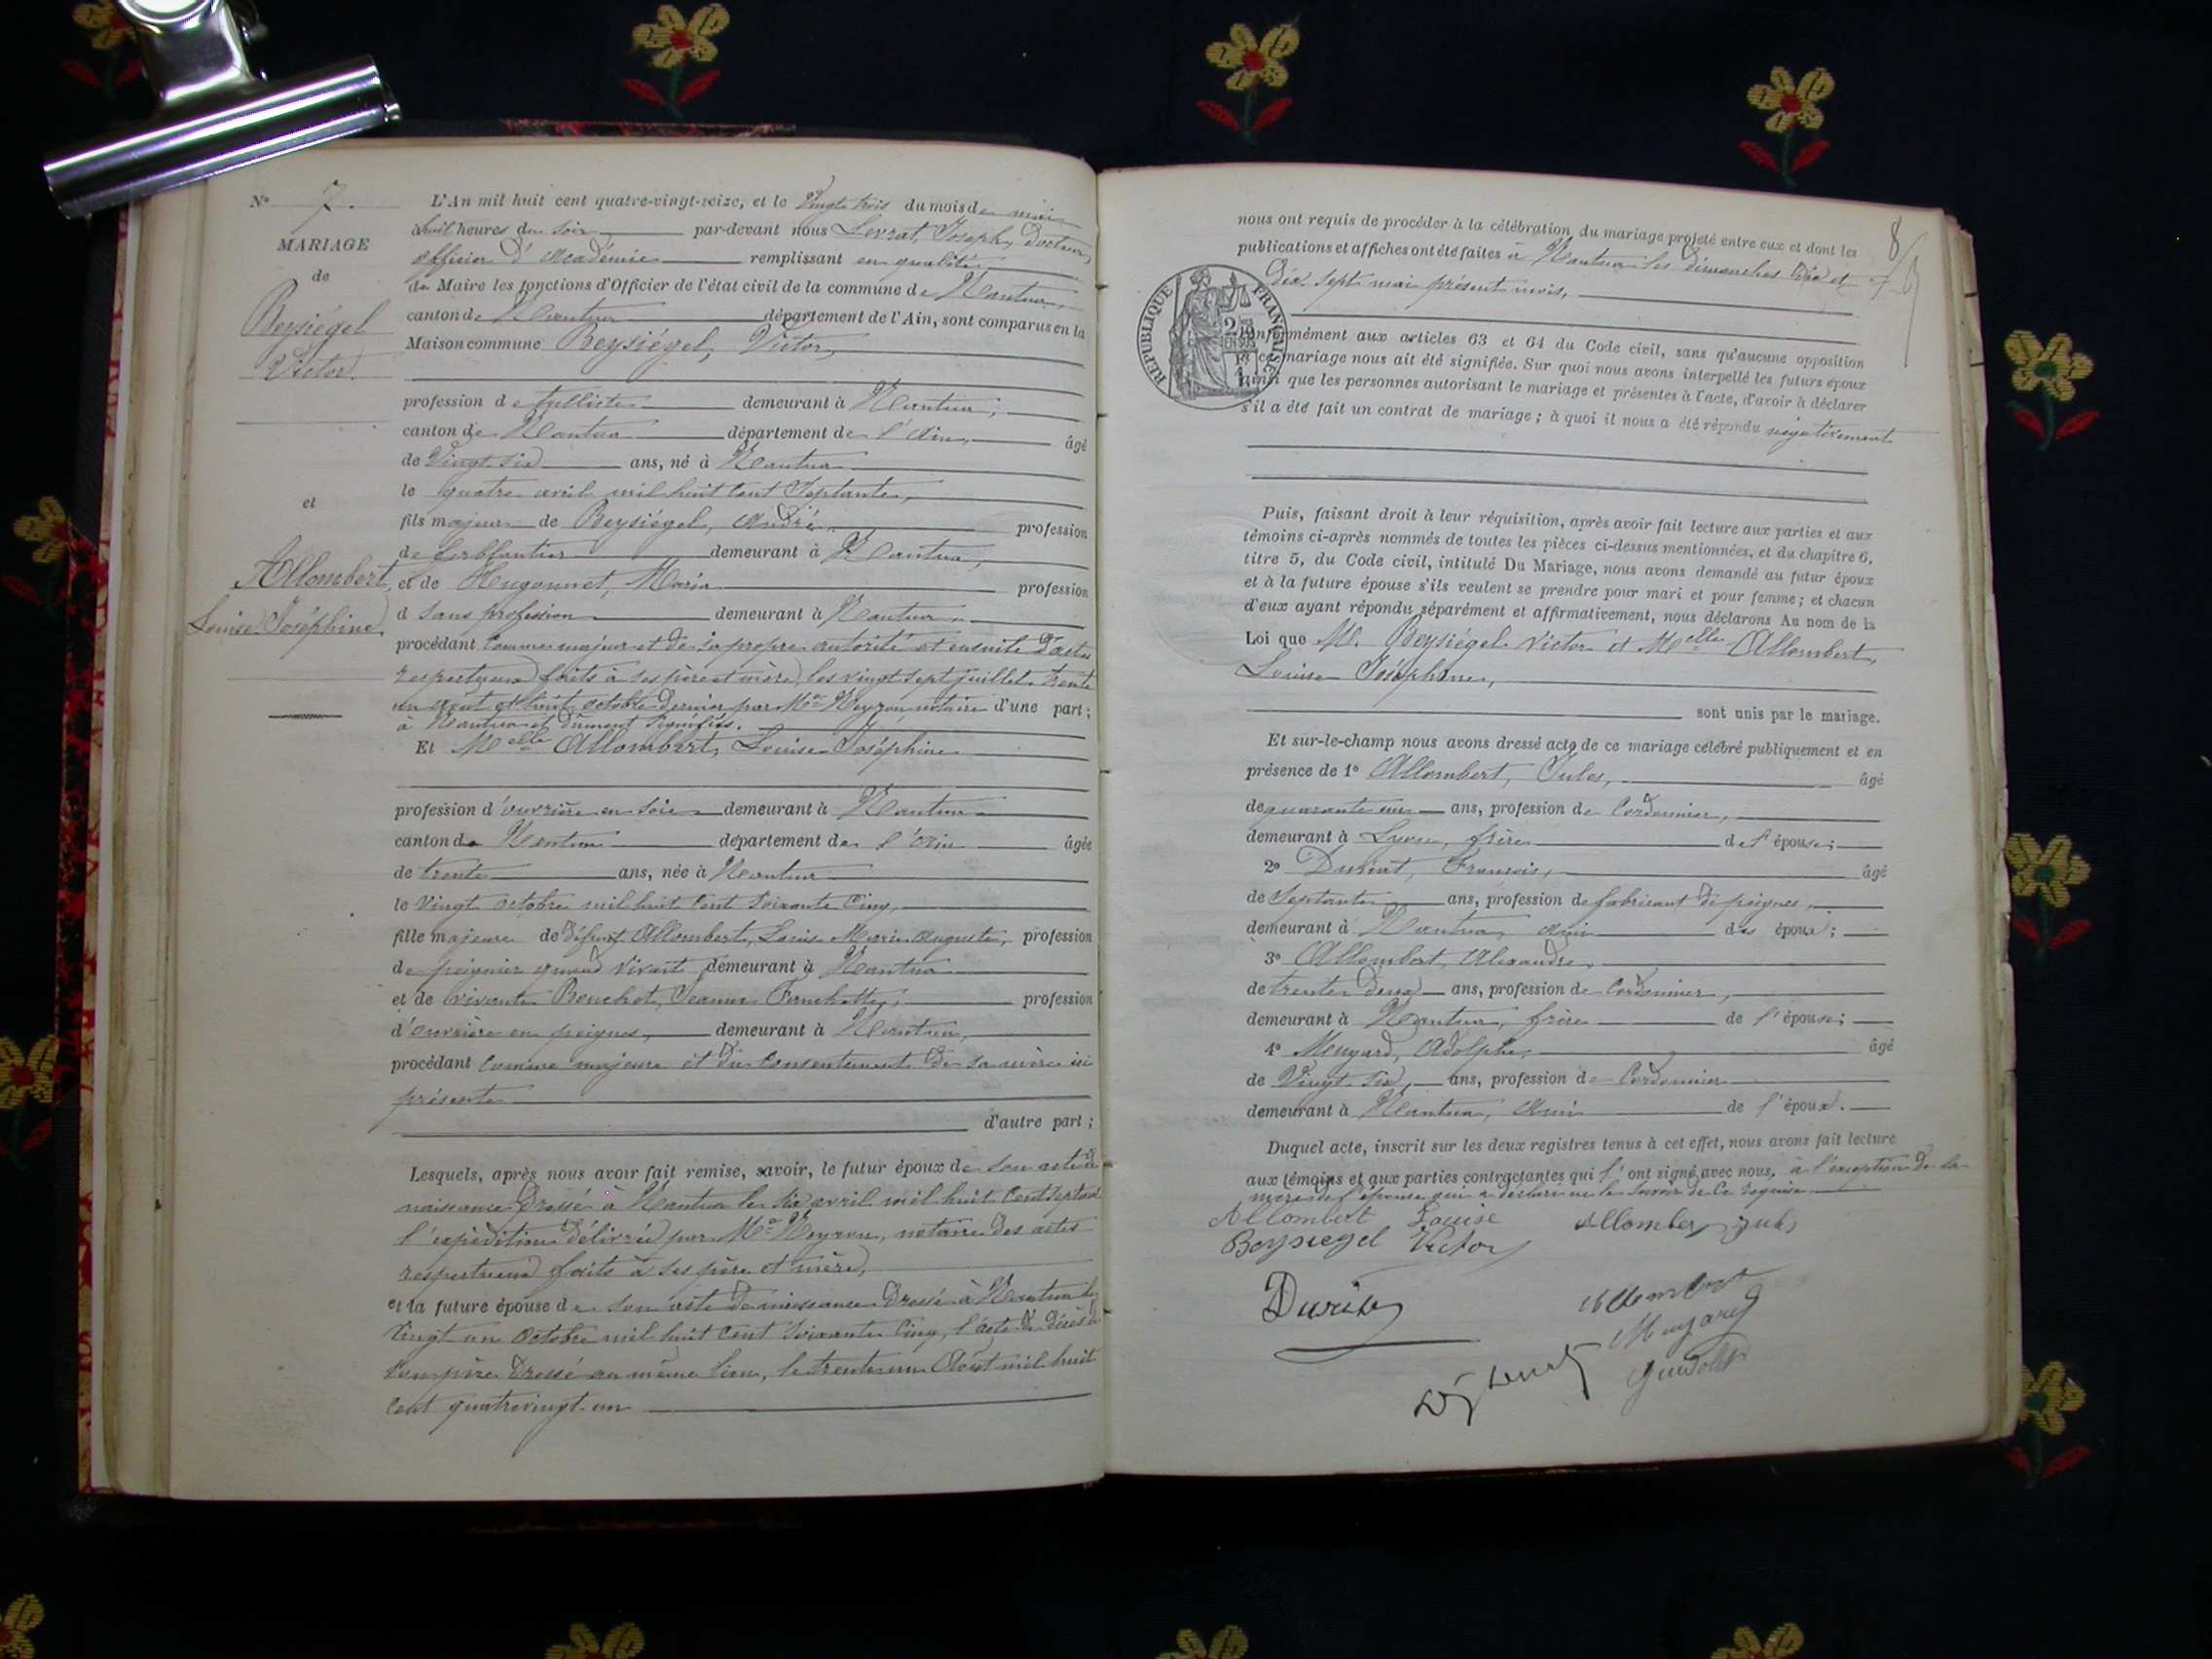 N° 7.
MARIAGE
de
Beysiégel
Victor.
et
Allombert,
Louise Joséphine.
L'An mil huit cent quatre-vingt-seize, et le Vingt trois du mois de mai
à huit heures du soir par-devant nous Levrat, Joseph, Docteur,
officier d'Académie remplissant en qualité
de Maire les fonctions d'Officier de l'état civil de la commune de Nantua,
canton de Nantua département de l'Ain, sont comparus en la
Maison commune Beysiégel, Victor,
profession de tulliste demeurant à Nantua,
canton de Nantua département de l'Ain, âgé
de Vingt six ans, né à Nantua
le quatre avril mil huit cent Septante,
fils majeur de Beysiégel, André profession
de ferblantier demeurant à Nantua,
et de Hugonnet, Maria profession
d sans profession demeurant à Nantua
procédant comme majeur et de sa propre autorité et ensuite d'actes
respectueux faits à ses père et mère, les vingt sept juillet, trente
un août et huit octobre dernier par Me Neyron notaire d'une part ;
à Nantua et dûment signifiés.
Et Melle Allombert, Louise Joséphine
profession d'ouvrière en soie demeurant à Nantua
canton de Nantua département de l'Ain âgée
de trente ans, née à Nantua
le Vingt octobre mil huit cent soixante Cinq,
fille majeure de défunt Allombert, Louis Marie Auguste, profession
de peignier quand vivait demeurant à Nantua
et de vivante Benchot, Jeanne Fanchette, profession
d'ouvrière en peignes, demeurant à Nantua,
procédant comme majeure et du consentement de sa mère ici
présente
d'autre part ;
Lesquels, après nous avoir fait remise, savoir, le futur époux de son acte de
naissance dressé à Nantua le six avril mil huit cent septante
l'expédition délivrée par Me Neyron, notaire des actes
respectueux faits à ses père et mère,
et la future épouse de son acte de naissance dressé à Nantua le
vingt un Octobre mil huit cent soixante Cinq, l'acte de décès de
son père dressé au même lieu, le trente un Août mil huit
cent quatrevingt-un
8
nous ont requis de procéder à la célébration du mariage projeté entre eux et dont les
publications et affiches ont été faites à Nantua les dimanches dix et
dix sept mai présent mois,
RÉPUBLIQUE FRANÇAISE
conformément aux articles 63 et 64 du Code civil, sans qu'aucune opposition
à ce mariage nous ait été signifiée. Sur quoi nous avons interpellé les futurs époux
ainsi que les personnes autorisant le mariage et présentes à l'acte, d'avoir à déclarer
s'il a été fait un contrat de mariage ; à quoi il nous a été répondu négativement
Puis, faisant droit à leur réquisition, après avoir fait lecture aux parties et aux
témoins ci-après nommés de toutes les pièces ci-dessus mentionnées, et du chapitre 6,
titre 5, du Code civil, intitulé Du Mariage, nous avons demandé au futur époux
et à la future épouse s'ils veulent se prendre pour mari et pour femme ; et chacun
d'eux ayant répondu séparément et affirmativement, nous déclarons Au nom de la
Loi que M. Beysiégel Victor et Melle Allombert,
Louise Joséphine,
sont unis par le mariage.
Et sur-le-champ nous avons dressé acte de ce mariage célébré publiquement et en
présence de 1° Allombert, Jules, âgé
de quarante un ans, profession de Cordonnier,
demeurant à Lyon, frère de l'épouse ;
2° François, âgé
de Septante ans, profession de fabricant de peignes,
demeurant à Nantua, ami des époux ;
3° Allombert, Alexandre,
de trente deux ans, profession de Cordonnier,
demeurant à Nantua, frère de l'épouse ;
4° Adolphe, âgé
de Vingt six, ans, profession de Cordonnier
demeurant à Nantua, ami de l'époux.
Duquel acte, inscrit sur les deux registres tenus à cet effet, nous avons fait lecture
aux témoins et aux parties contractantes qui l'ont signé avec nous, à l'exception de la
mère de l'épouse qui a déclaré ne le savoir de ce requise
Allombert Louise Allombert Jules
Beysiegel Victor
Allombert